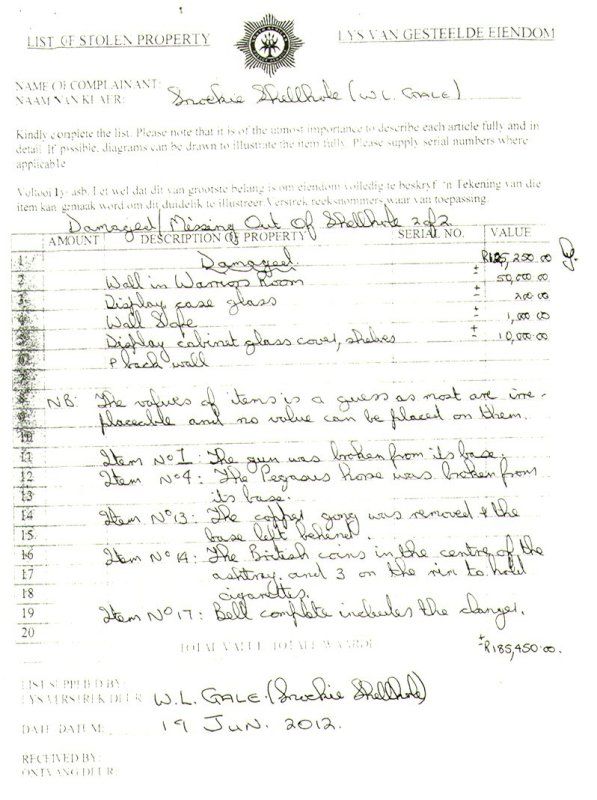 LIST OF STOLEN PROPERTY
LYS VAN GESTEELDE EIENDOM
NAME OF COMPLAINANT:
NAAM VAN KLAER:
Snockie Shellhole (W.L. GALE)
Kindly complete the list. Please note that it is of the utmost importance to describe each article fully and in
detail. If possible, diagrams can be drawn to illustrate the item fully. Please supply serial numbers where
applicable
Voltooi lys asb. Let wel dat dit van grootste belang is om eiendom volledig te beskryf. 'n Tekening van die
item kan gemaak word om dit duidelik te illustreer. Verstrek reeksnommers waar van toepassing.
Damaged/Missing Out Of Shellhole 2 of 2
AMOUNT DESCRIPTION OF PROPERTY SERIAL NO. VALUE
1 Damaged. R125,250.00
2 Wall in Warriors Room ± 50,000.00
3 Display case glass ± 200.00
4 Wall Safe ± 1,000.00
5 Display cabinet glass cover, shelves ± 10,000.00
& back wall
8 NB: The values of items is a guess as most are irre-
placeable and no value can be placed on them.
10
11 Item No 1: The gun was broken from its base.
12 Item No 4: The Pegasus horse was broken from
13 its base.
14 Item No 13: The copper gong was removed & the
15 base left behind.
16 Item No 14: The British coins in the centre of the
17 ashtray and 3 on the rim to hold
18 cigarettes.
19 Item No 17: Bell complete includes the clanger.
20
TOTAL VALUE/TOTALE WAARDE ±R185,450.00.
LIST SUPPLIED BY:
LYS VERSTREK DEUR: W.L. GALE. (Snockie Shellhole)
DATE/DATUM: 19 JUN. 2012.
RECEIVED BY:
ONTVANG DEUR: